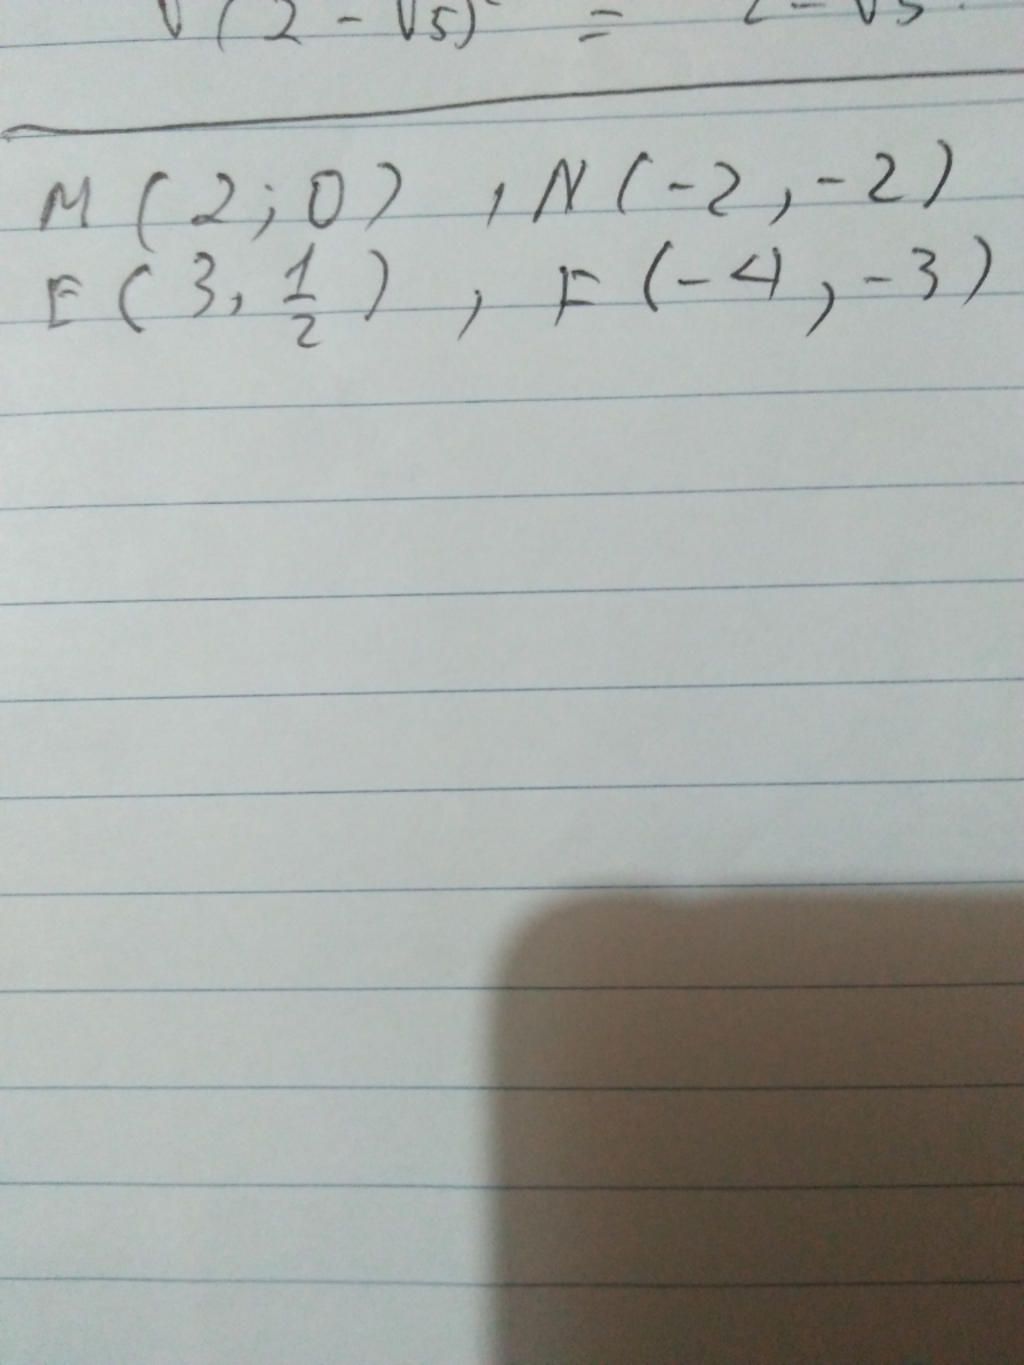 √(2 - √5)² = 2 - √5.
M(2;0) , N(-2,-2)
E(3, 1/2) , F(-4,-3)